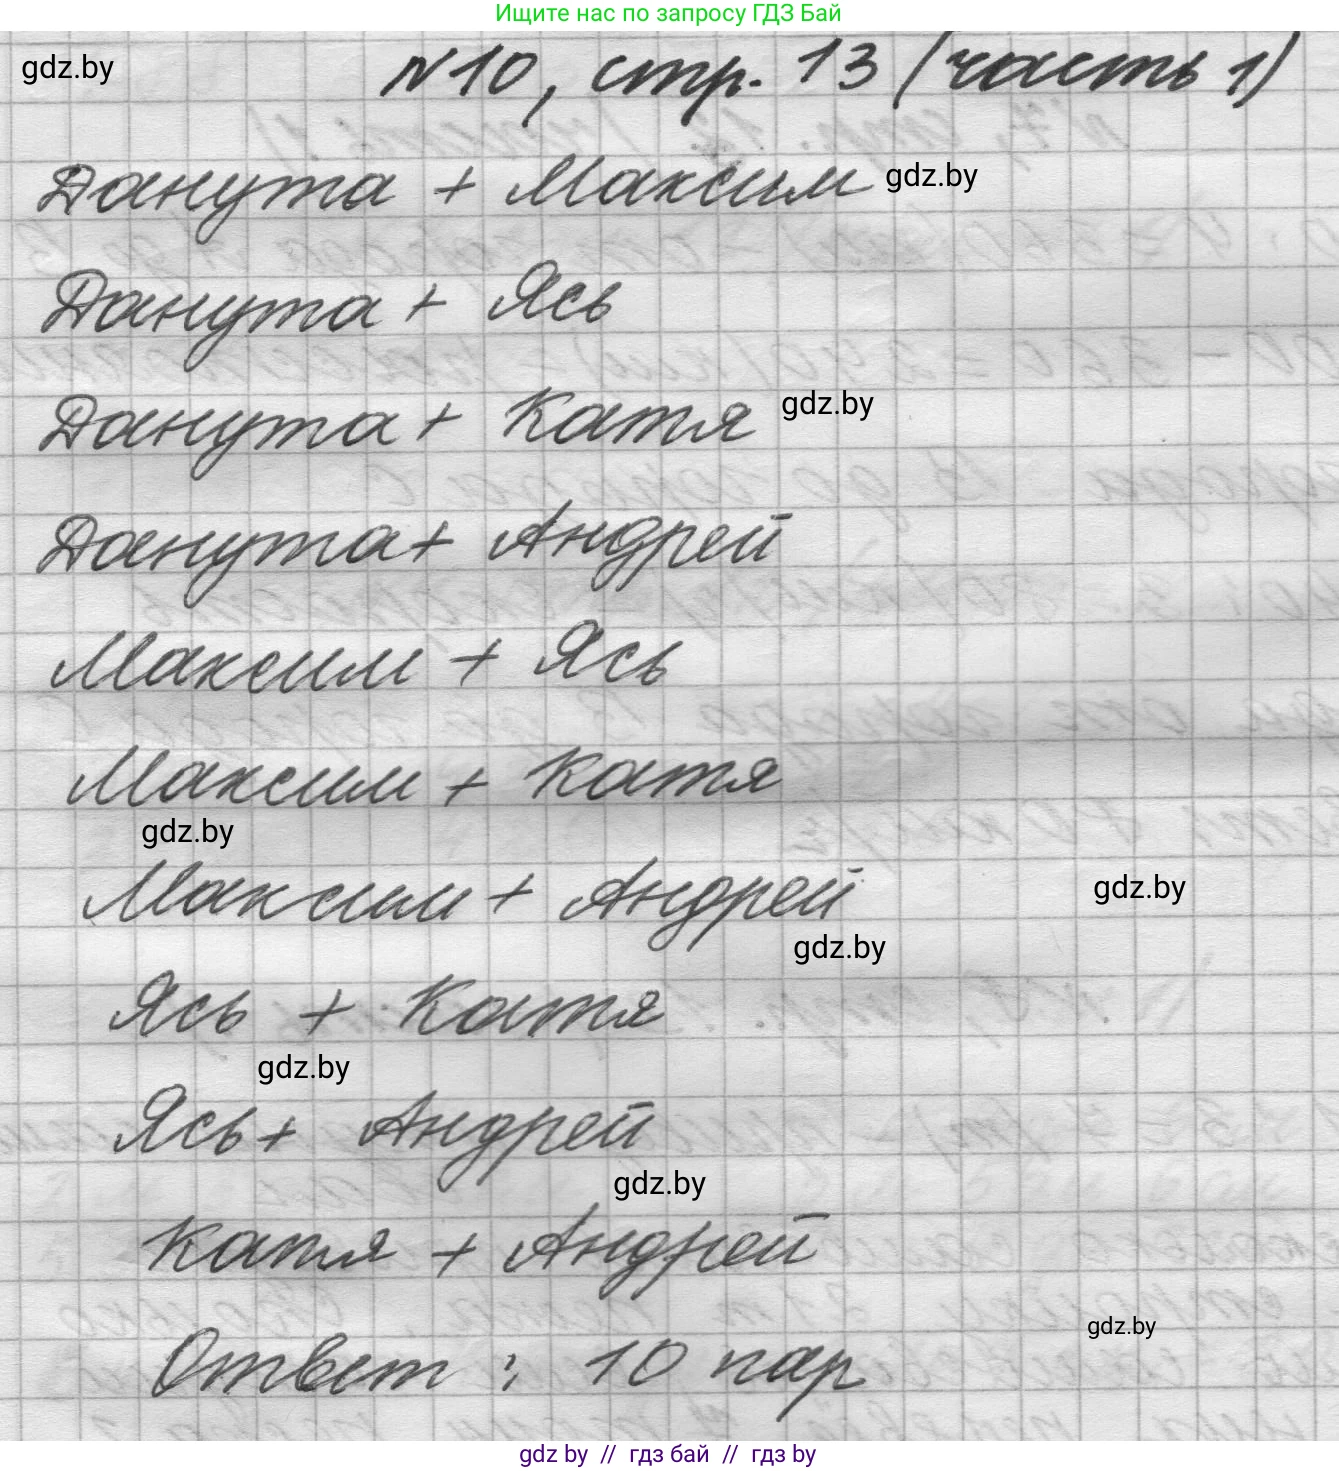 Ищите нас по запросу ГДЗ Бай
gdz.by
№10, стр. 13 (часть 1)
Данута + Максим gdz.by
Данута + Ясь
Данута + Катя gdz.by
Данута + Андрей
Максим + Ясь
Максим + Катя
gdz.by
Максим + Андрей
gdz.by
gdz.by
Ясь + Катя
gdz.by
Ясь + Андрей
gdz.by
Катя + Андрей
gdz.by
Ответ: 10 пар
gdz by // гдз бай // гдз by